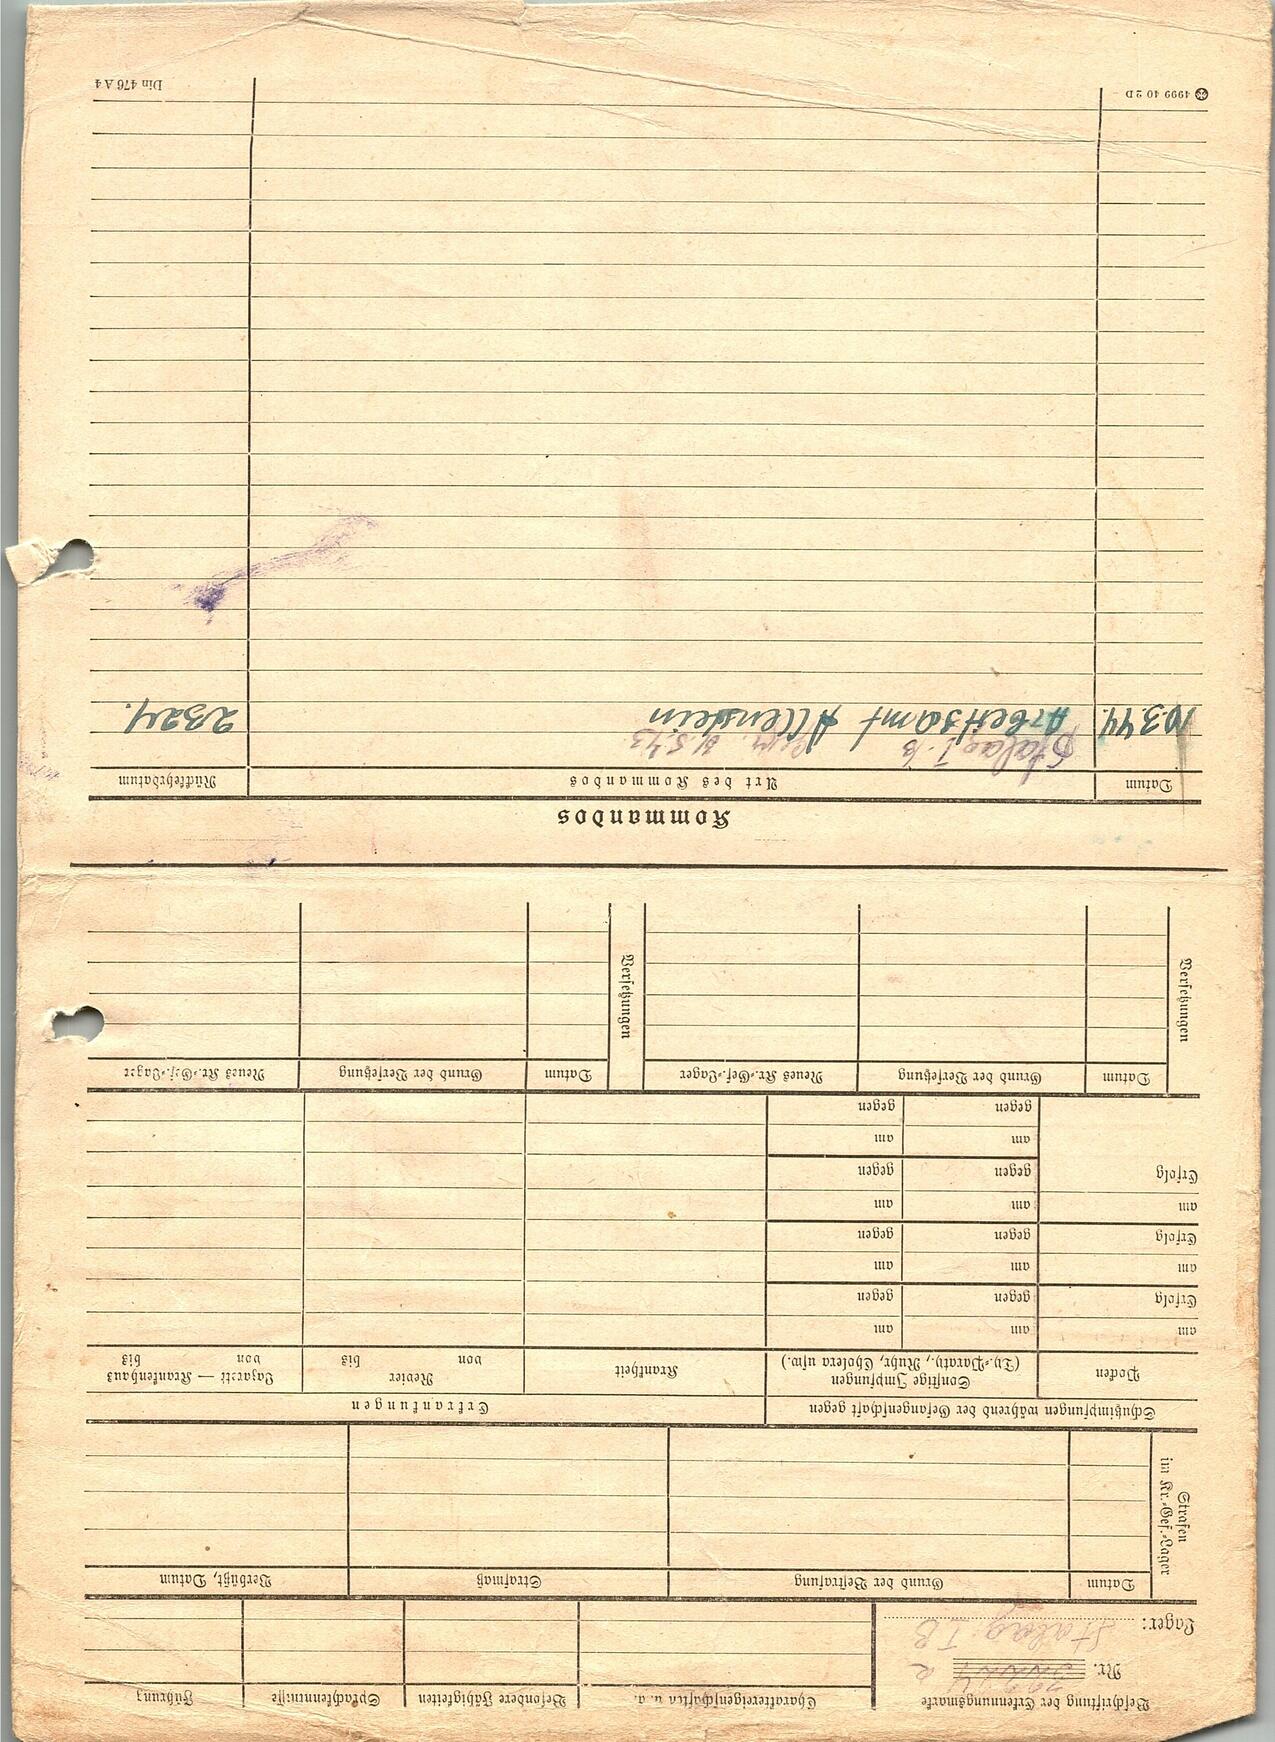 Beschriftung der Erkennungsmarke
Nr.
Lager: Stalag I B
Charaktereigenschaften u. a.
Besondere Fähigkeiten
Sprachkenntnisse
Führung
Strafen
im Kr.-Gef.-Lager
Datum
Grund der Bestrafung
Strafmaß
Verbüßt, Datum
Schutzimpfungen während der Gefangenschaft gegen
Erkrankungen
Pocken
Sonstige Impfungen
(Ty.-Paraty., Ruhr, Cholera usw.)
Krankheit
Revier
von bis
Lazarett — Krankenhaus
von bis
am am am
Erfolg gegen gegen
am am am
Erfolg gegen gegen
am am am
Erfolg gegen gegen
am am
gegen gegen
Versetzungen
Datum
Grund der Versetzung
Neues Kr.-Gef.-Lager
Versetzungen
Datum
Grund der Versetzung
Neues Kr.-Gef.-Lager
Kommandos
Datum
Art des Kommandos
Rückkehrdatum
Stalag I. B
10.3.44. Arbeitsamt Allenstein
4999 40 2D
Din 476 A 4